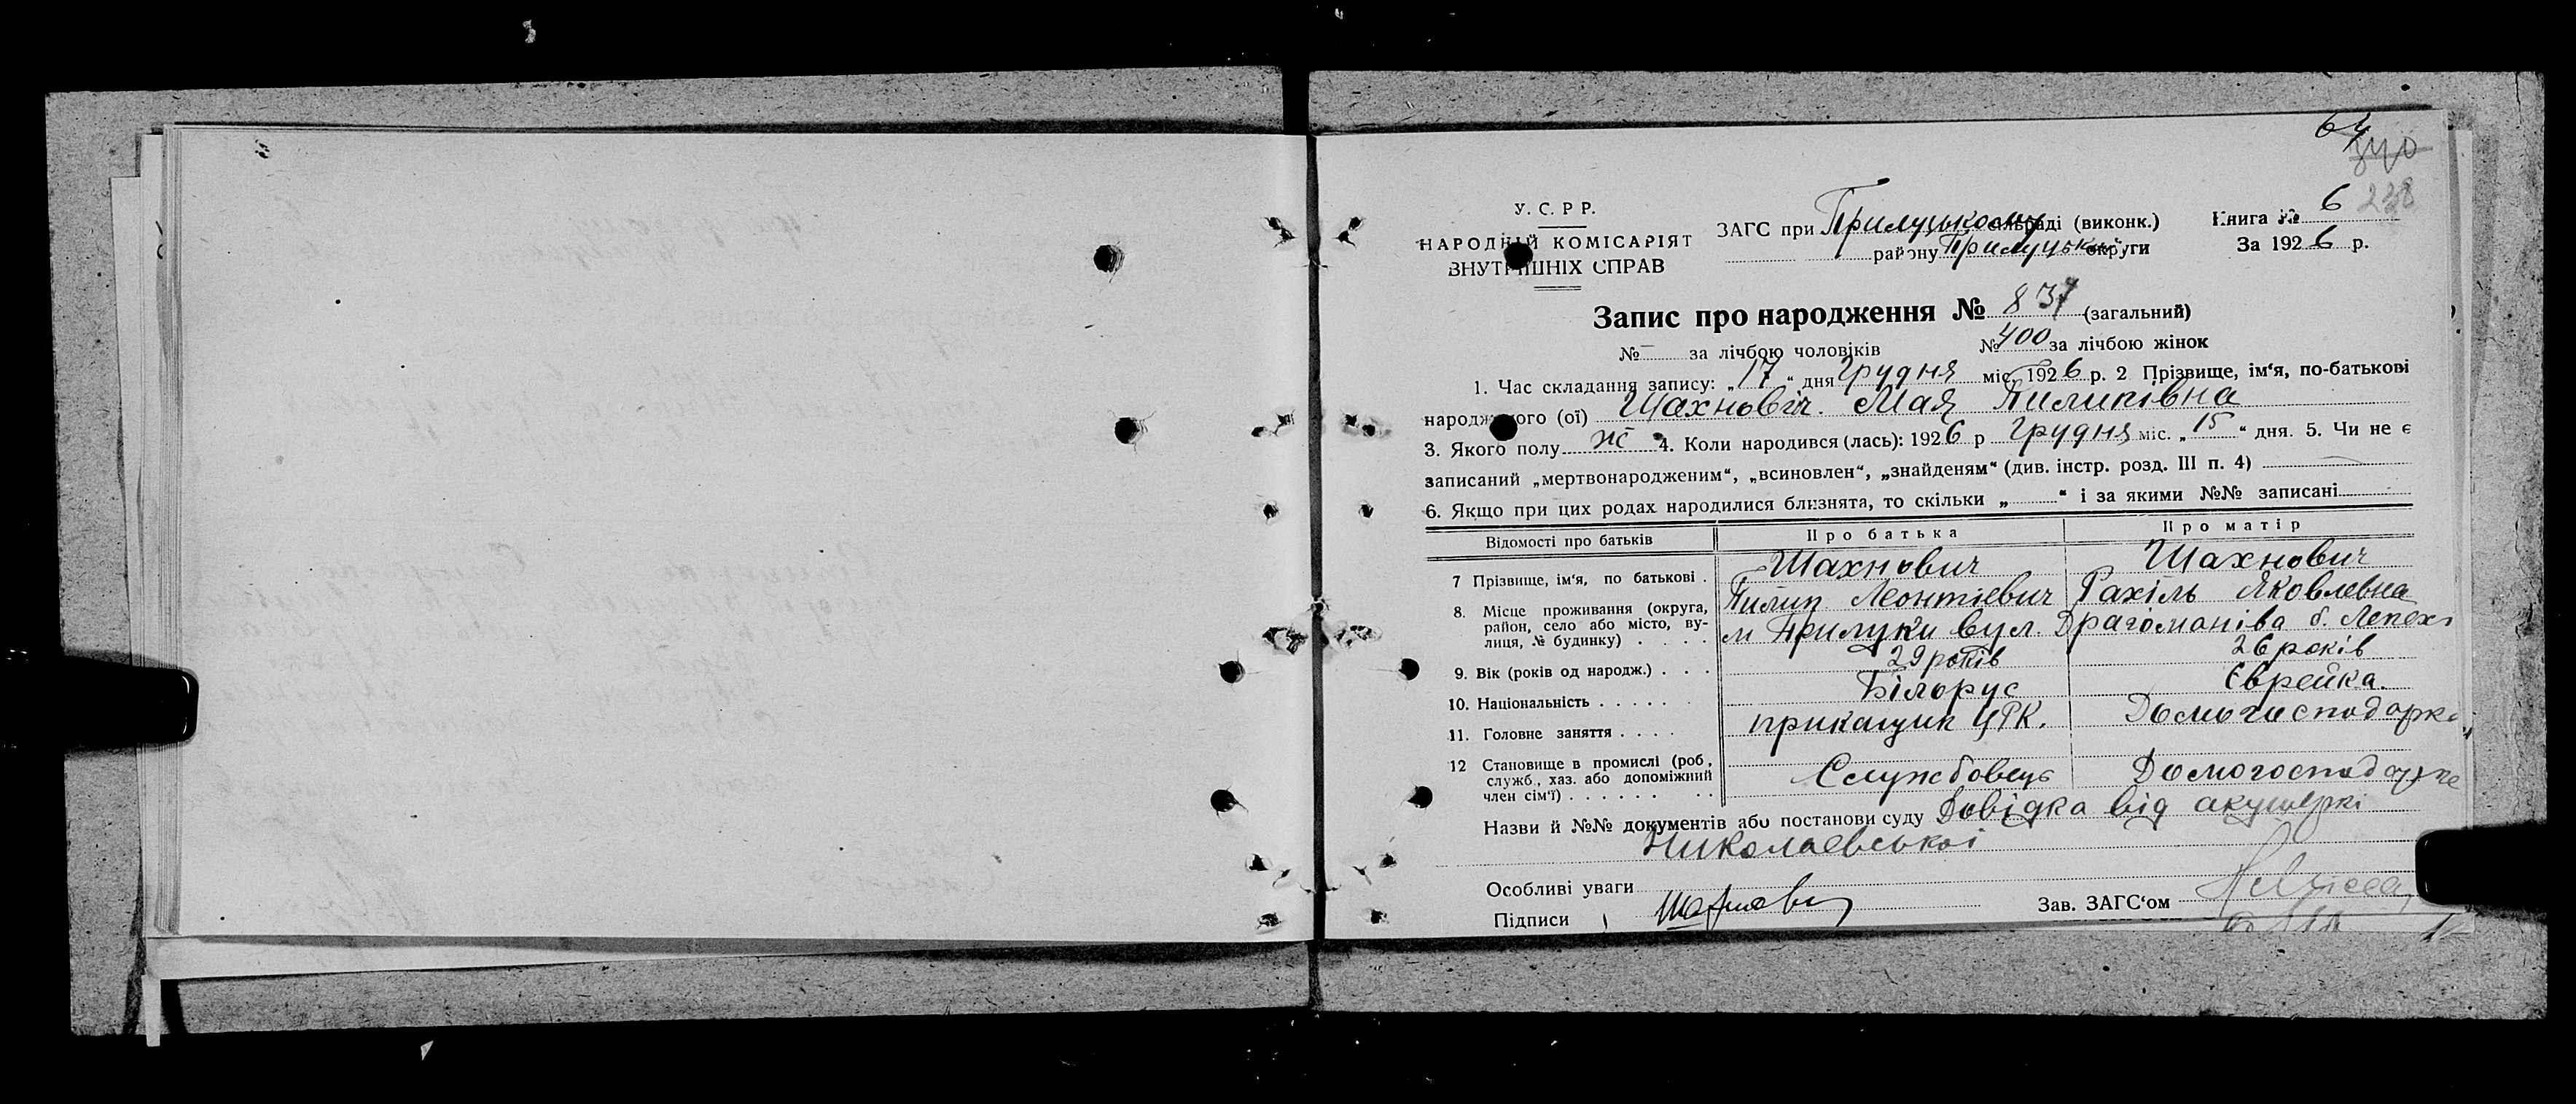 64
340
238
У. С. Р Р.
НАРОДНІЙ КОМІСАРІЯТ
ВНУТРІШНІХ СПРАВ
ЗАГС при Прилуцькому сільраді (виконк.)
району Прилуцьк округи
Книга № 6
За 1926 р.
Запис про народження № 837 (загальний)
№ — за лічбою чоловіків № 400 за лічбою жінок
1. Час складання запису: „17“ дня Грудня міс. 1926 р. 2 Прізвище, ім‘я, по-батькові
народженого (ої) Шахновіч. Мая Пилипівна
3. Якого полу ж 4. Коли народився (лась): 1926 р Грудня міс. „15“ дня. 5. Чи не є
записаний „мертвонародженим“, „всиновлен“, „знайденям“ (див. інстр. розд. III п. 4)
6. Якщо при цих родах народилися близнята, то скільки „ “ і за якими №№ записані
Відомості про батьків Про батька Про матір
7 Прізвище, ім‘я, по батькові . Шахнович Шахнович
Пилип Леонтієвич Рахіль Яковлевна
8. Місце проживання (округа, район, село або місто, вулиця, № будинку) . . . . м Прилуки вул. Драгоманіва б. Лепехі
9. Вік (років од народж.) . . . 29 років 26 років
10. Національність . . . . . . Білорус Єврейка.
11. Головне заняття . . . . прикащик ЦРК. Домогосподарка
12 Становище в промислі (роб, служб., хаз. або допоміжний член сім‘ї) . . . . . . . . Службовець Домогосподарка
Назви й №№ документів або постанови суду Довідка від акушеркі
Николаєвської
Особливі уваги
Підписи Шахнович Зав. ЗАГС‘ом